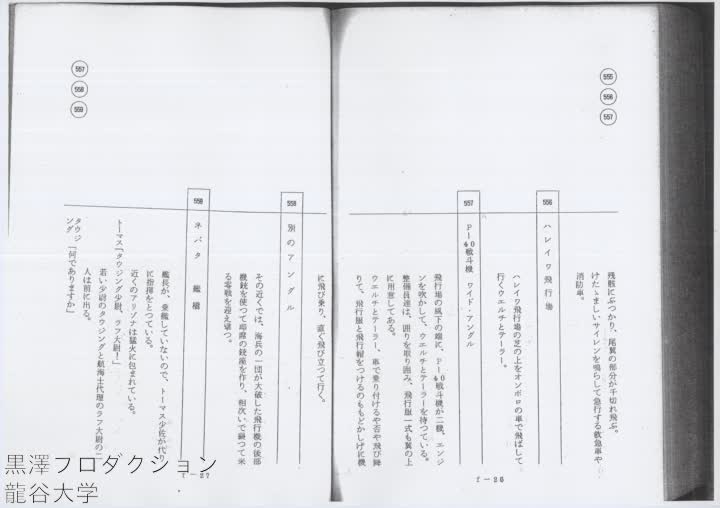 555
556
557
残骸にぶつかり、尾翼の部分が千切れ飛ぶ。
けたゝましいサイレンを鳴らして急行する救急車や
消防車。
556
ハレイワ飛行場
ハレイワ飛行場の芝の上をオンボロの車で飛ばして
行くウエルチとテーラー。
557
P─40戦斗機 ワイド・アングル
飛行場の風下の端に、P─40戦斗機が二機、エンジ
ンを吹かして、ウエルチとテーラーを待つている。
整備員達は、囲りを取り囲み、飛行服一式も翼の上
に用意してある。
ウエルチとテーラー、車で乗り付けるや否や飛び降
りて、飛行服と飛行帽をつけるのももどかしげに機
f─26
557
558
559
に飛び乗り、直ぐ飛び立つて行く。
558
別のアングル
その近くでは、海兵の一団が大破した飛行機の後部
機銃を使つて即席の銃座を作り、相次いで襲つて来
る零戦を迎え撃つ。
559
ネバタ 艦橋
艦長が、乗艦していないので、トーマス少佐が代り
に指揮をとつている。
近くのアリゾナは猛火に包まれている。
トーマス「タウジング少尉、ラフ大尉！」
若い少尉のタウジングと航海士代理のラフ大尉の二
人は前に出る。
タウジング「何でありますか」
f─27
黒澤プロダクション
龍谷大学